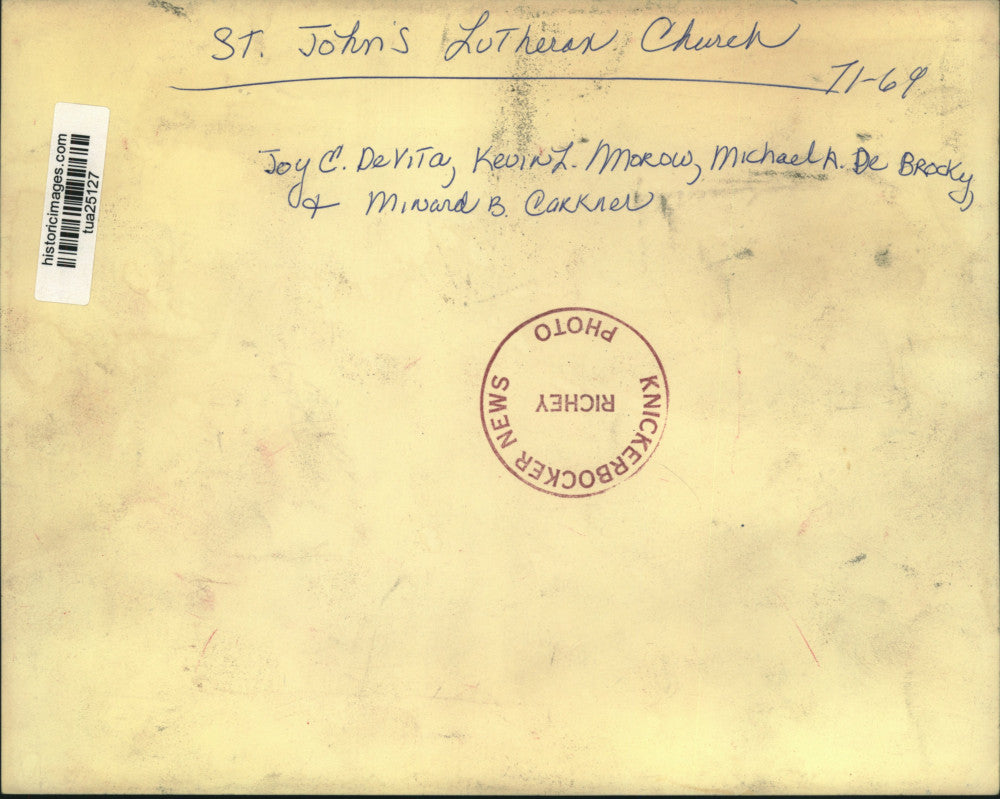 St. John's Lutheran Church
71-69
Joy C. DeVita, Kevin L. Morow, Michael A. De Brocky,
+ Minard B. Carkner
historicimages.com
tua25127
PHOTO
RICHEY
KNICKERBOCKER NEWS